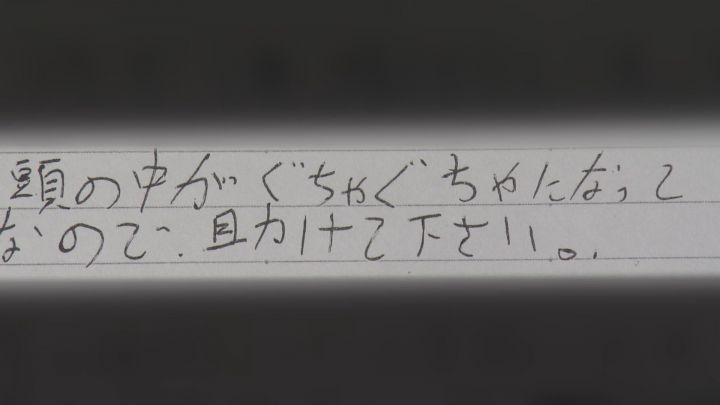 頭の中がぐちゃぐちゃになって
なので、助けて下さい。